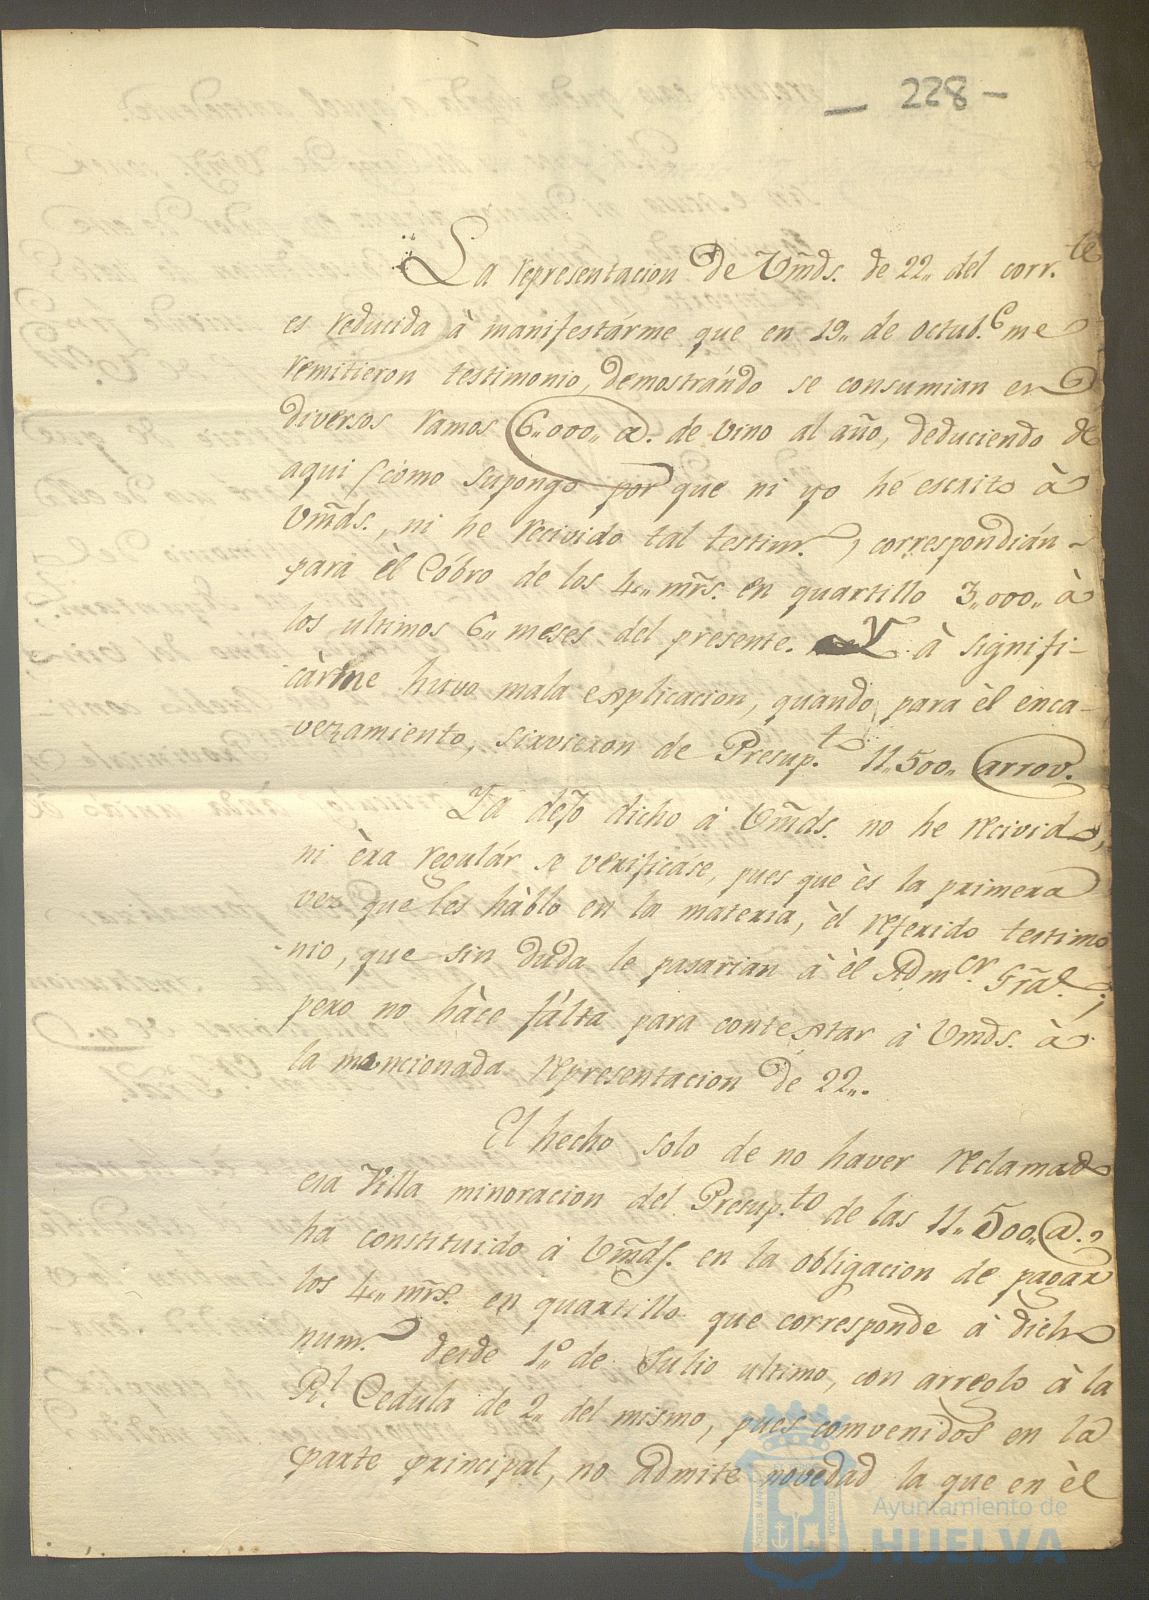 — 228 —
La representacion de Vm̃ds. de 22,, del corr.te
es reducida à manifestárme que en 19,, de octub.e me
remitieron testimonio, demostrándo se consumian en
diversos ramos 6,,000,, @. de vino al año, deduciendo de
aqui (como supongo por que ni yo he escrito à
Vm̃ds., ni he recivido tal testim.o) correspondián
para èl Cóbro de los 4,, mr̃s. en quartillo 3,,000,, à
los ultimos 6,, meses del presente. Y à signifi-
càrme huvo mala explicacion, quando para èl enca-
vezamiento, sirvieron de Presup.to 11,,500,, arrov.
Ya dejo dicho à Vm̃ds. no he recivido,
ni èra regulár se verificáse, pues que ès la primera
vez que les háblo en la materia, èl referido testimo
-nio, que sin duda le pasarian à èl Adm.or Gr̃al.;
pero no hàce fálta para contextar à Vmds. à
la mencionada representacion de 22,,.
El hecho solo de no haver reclamado
esa Villa minoracion del Presup.to de las 11,,500,, @.s
ha constituido à Vm̃ds. en la obligacion de pagar
los 4,, mr̃s. en quartillo que corresponde à dicho
num.o desde 1,,o de Julio ultimo, con arreglo à la
R.l Cedula de 2,, del mismo, pues comvenidos en la
parte principal, no admite novedad la que en èl
Ayuntamiento de
HUELVA